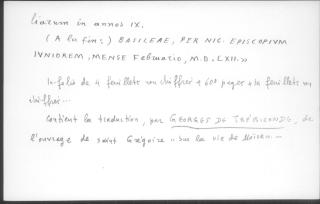 liarum in annos IX.
(A la fin:) BASILEAE, PER NIC. EPISCOPIVM
IVNIOREM, MENSE Februario, M.D.LXII.»
In-folio de 4 feuillets non chiffrés, 601 pages et un feuillets non
chiffré...
Contient la traduction, par GEORGES DE TRÉBIZONDE, de
l'ouvrage de saint Grégoire "Sur la vie de Moïse". —